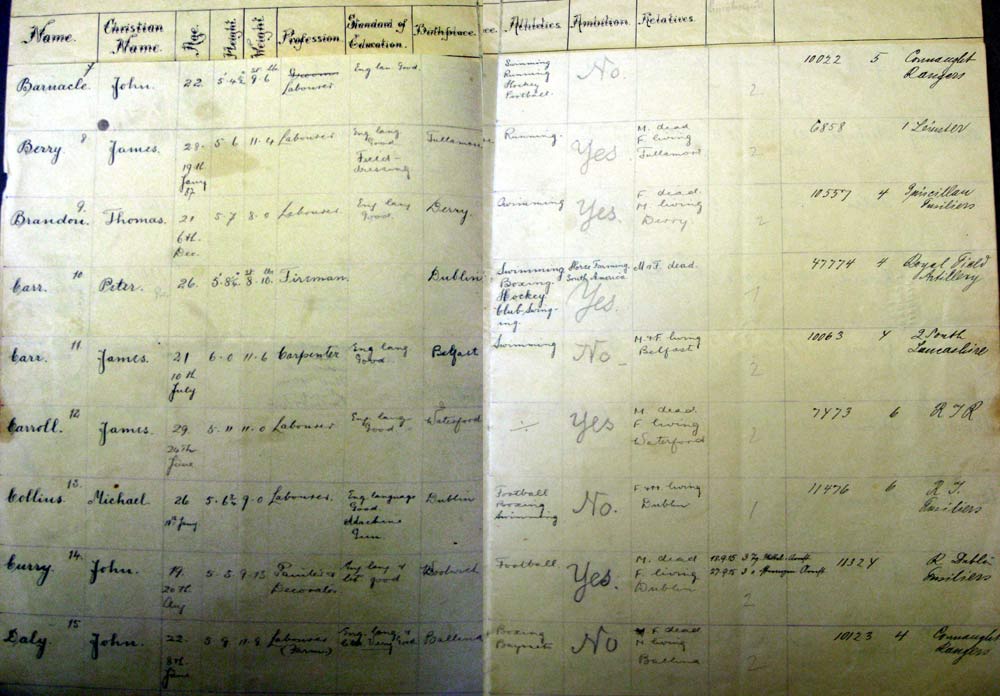 Name. Christian Name. Age. Height. Weight. Profession. Standard of Education. Birthplace. Athletics. Ambition. Relatives.
Barnacle. 7 John. 22. 5'-4½" 9st-6lb Labourer Eng lan Good.
Swimming Running Hockey Football. No. 2 10022 5 Connaught Rangers
Berry. 8 James. 28. 19th Jany 87 5-6 11-4 Labourer Eng lang Good. Field-dressing Tullamore
Running. Yes M. dead F. living Tullamore 2 6858 1 Leinster
Brandon. 9. Thomas. 21 6th. Dec. 5-7 8-0 Labourer. Eng lang Good. Derry.
Swimming Yes. F. dead. M. living Derry 2 10557 4 Fusiliers
Carr. 10 Peter. 26. 8-10. Fireman. Dublin
Swimming Boxing. Hockey. Club Swinging. Horse Farming South America Yes. M & F. dead. 1 47774 4 Royal Field Artillery
Carr. 11 James. 21 10th July 6-0 11-6 Carpenter Eng lang Good. Belfast
Swimming No M. & F. living Belfast 2 10063 4 2 South Lancashire
Carroll. 12 James. 29. 5-11 11-0 Labourer Eng lang Good. Waterford
Yes M. dead. F. living Waterford 2 7473 6 R I R
Collins. 13. Michael 26 5-6¾ 9-0 Labourer. Eng language Good. Machine Gun. Dublin
Football Boxing Swimming No. F & M. living Dublin 1 11476 6 R. I. Fusiliers
Curry. 14. John. 19. 20th Aug 5-5 9-13 Painter & Decorator Eng lang & lit good Woolwich
Football. Yes. M. dead F. living Dublin 2 11324 R Dublin Fusiliers
Daly. 15 John. 22. 8th June 5-9 11-8 Labourer (Farms) Eng. lang & Very Good Ballina
Boxing Bayonet No F dead M. living Ballina 2 10123 4 Connaught Rangers